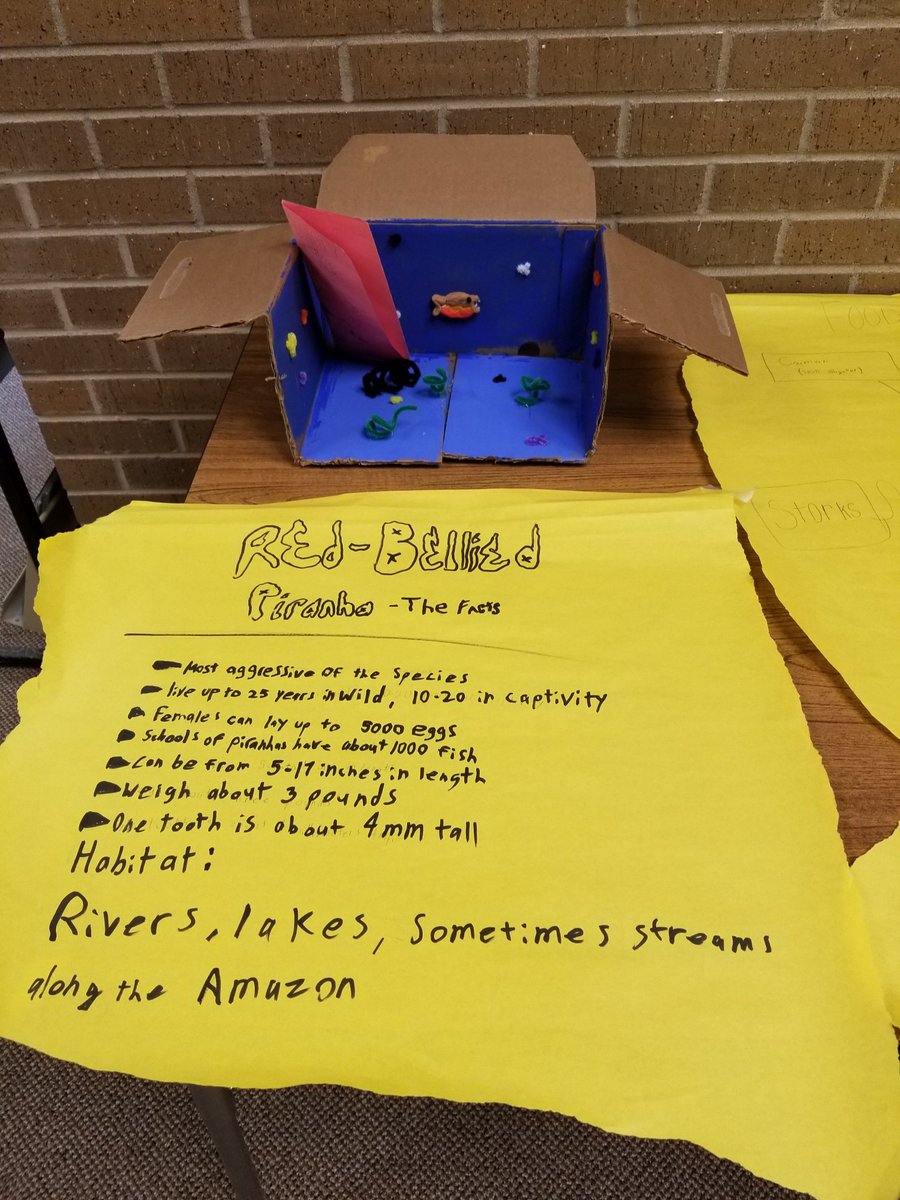 REd-BEllIEd
Piranha - The Facts
Most aggressive of the species
live up to 25 years in wild, 10-20 in captivity
Females can lay up to 5000 eggs
Schools of piranhas have about 1000 fish
Can be from 5-17 inches in length
Weigh about 3 pounds
One tooth is about 4mm tall
Habitat:
Rivers, lakes, sometimes streams
along the Amazon
FOOD
Caiman
Storks